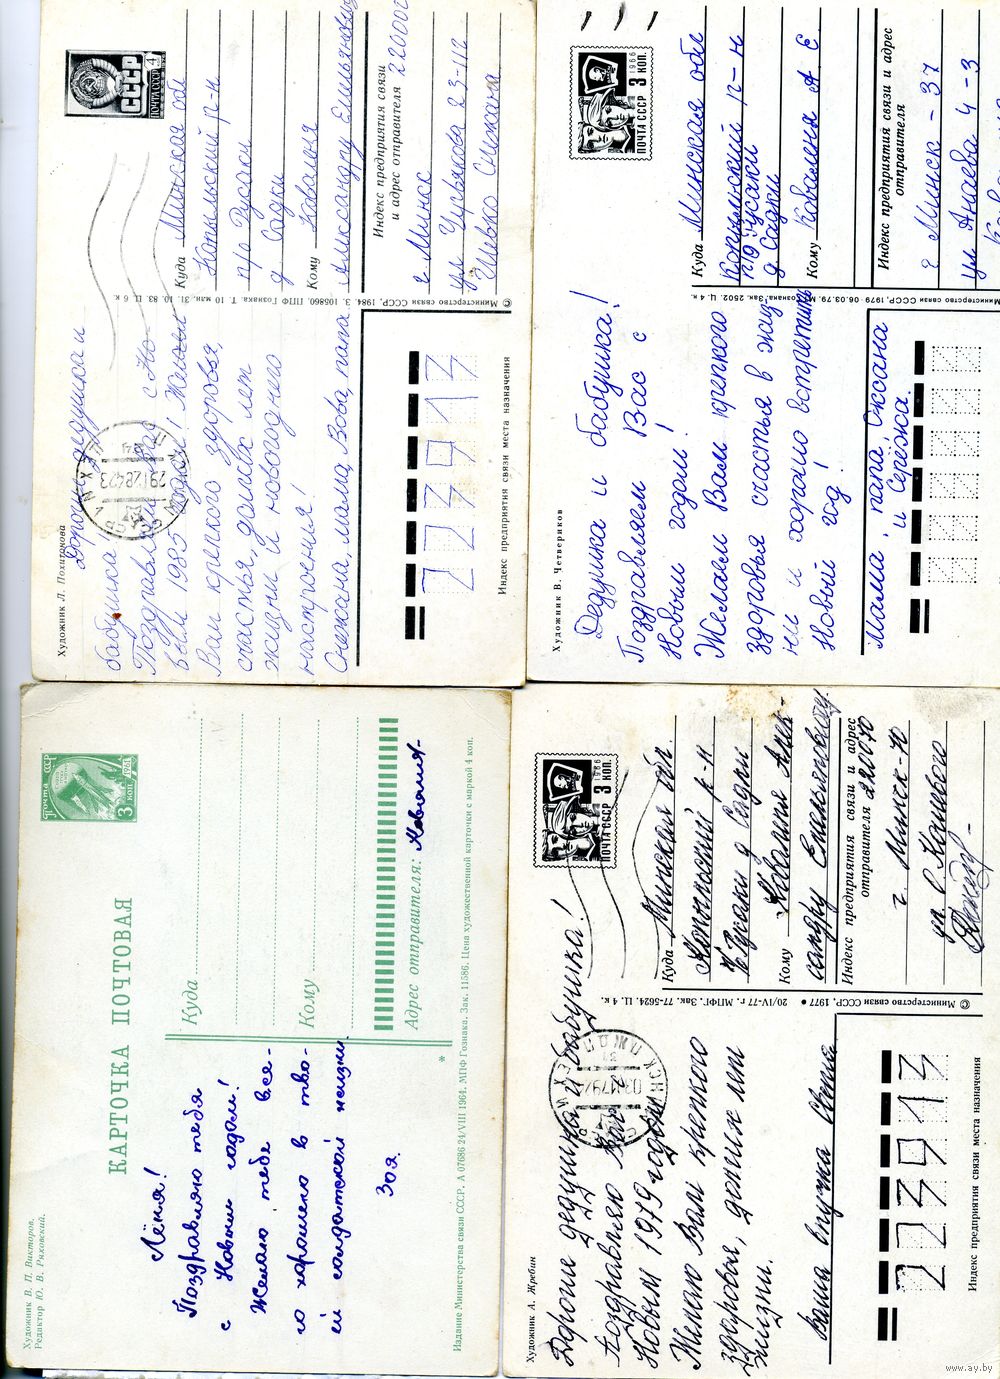 Художник Л. Похитонова
Дорогие дедушка и
бабушка
Поздравляем Вас с Но-
вым 1985 годом! Желаем
Вам крепкого здоровья,
счастья, долгих лет
жизни и новогоднего
настроения!
Снежана, мама, Вова, папа.
ПОЧТА СССР 4
СССР
Куда Минская обл
Копыльский р-н
п/о Русаки
д Садки
Кому Коваленя
Александру Емельяновичу
Индекс предприятия связи
и адрес отправителя 220000
г Минск
23-112
Снежана
© Министерство связи СССР, 1984. З. 105860. ППФ Гознака. Т. 10 млн. 31. 10. 83 Ц. 6 к.
223913
Индекс предприятия связи места назначения
Художник В. Четвериков
Дедушка и бабушка!
Поздравляем Вас с
Новым годом!
Желаем Вам крепкого
здоровья счастья в жиз-
ни и хорошо встретить
Новый год!
Мама, папа, Оксана
и Серёжа.
1966
ПОЧТА СССР 3 КОП.
Куда Минская обл
Копыльский р-н
п/о Русаки
д Садки
Кому Коваленя А Е
Индекс предприятия связи и адрес
отправителя
г Минск - 37
ул Анаева 4-3
© Министерство связи СССР, 1979 · 06.03.79. Мпф Гознака. Зак. 2502. Ц. 4 к.
Художник В. П. Викторов.
Редактор Ю. В. Ряховский.
КАРТОЧКА ПОЧТОВАЯ
Лёня!
Поздравляю тебя
с Новым годом!
Желаю тебе все-
го хорошего в тво-
ей солдатской жизни.
Зоя.
Почта СССР
3 коп. 1961
Куда
Кому
Адрес отправителя: Коваленя
*
Издание Министерства связи СССР. А 07686 24/VIII 1964. МПФ Гознака. Зак. 11586. Цена художественной карточки с маркой 4 коп.
Художник А. Жребин
Дорогие дедушка и бабушка!
Поздравляю Вас с
Новым 1979 годом
Желаю Вам крепкого
здоровья, долгих лет
жизни.
Ваша внучка Света
1966
ПОЧТА СССР 3 КОП.
Куда Минская обл.
Копыльский р-н
п/о Русаки д Садки
Кому Коваленя Алек-
сандру Емельяновичу
Индекс предприятия связи и адрес
отправителя 220070
г. Минск-70
ул.
© Министерство связи СССР, 1977 • 20/IV-77 г. МПФГ. Зак. 77-5624. Ц. 4 к.
223913
Индекс предприятия связи места назначения
www.ay.by